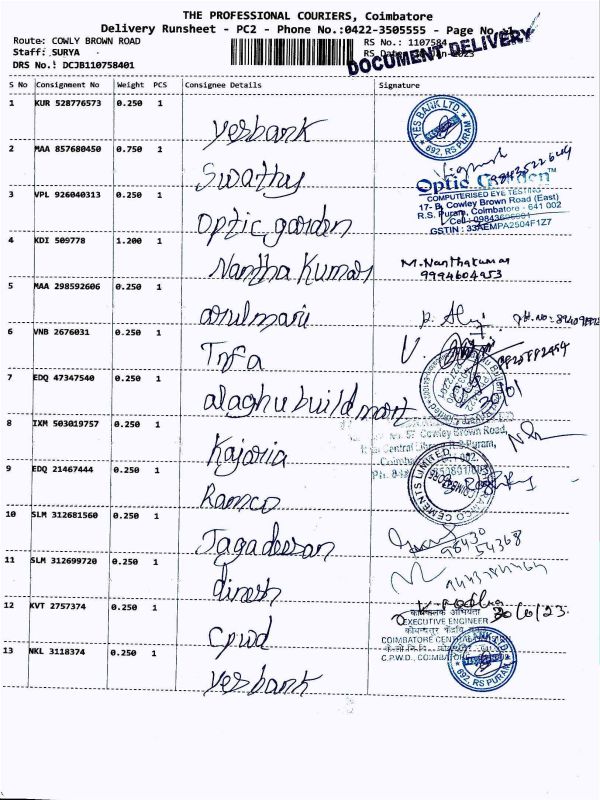 THE PROFESSIONAL COURIERS, Coimbatore
Delivery Runsheet - PC2 - Phone No.:0422-3505555 - Page No.
Route: COWLY BROWN ROAD
RS No.: 1107584
Staff: SURYA
RS Date
DOCUMENT DELIVERY
DRS No.: DCJB110758401
S No Consignment No Weight PCS Consignee Details Signature
1 KUR 528776573 0.250 1
yesbank
YES BANK LTD. * 692, RS PURAM *
2 MAA 857680450 0.750 1
Swathy
3 VPL 926040313 0.250 1
Optic garden
Optic Garden™
COMPUTERISED EYE TESTING
17- B, Cowley Brown Road (East)
R.S. Puram, Coimbatore - 641 002
Cell :
GSTIN : 33AEMPA2504F1Z7
4 KDI 509778 1.200 1
Nantha Kumar
M.Nanthakumar
9994604953
5 MAA 298592606 0.250 1
arulmari
Ph.no:
6 VNB 2676031 0.250 1
Tnfa
7 EDQ 47347540 0.250 1
alaghu build mart
8 IXM 503019757 0.250 1
Kajoria
57 Cowley Brown Road,
9 EDQ 21467444 0.250 1
Ramco
RAMCO CEMENTS LIMITED
10 SLM 312681560 0.250 1
Jagadeesan
98430
54368
11 SLM 312699720 0.250 1
dinesh
12 KVT 2757374 0.250 1
cpwd
कार्यपालक अभियंता
EXECUTIVE ENGINEER
COIMBATORE CENTRAL
C.P.W.D.,
13 NKL 3118374 0.250 1
yesbank
YES BANK LTD. * 692, RS PURAM *